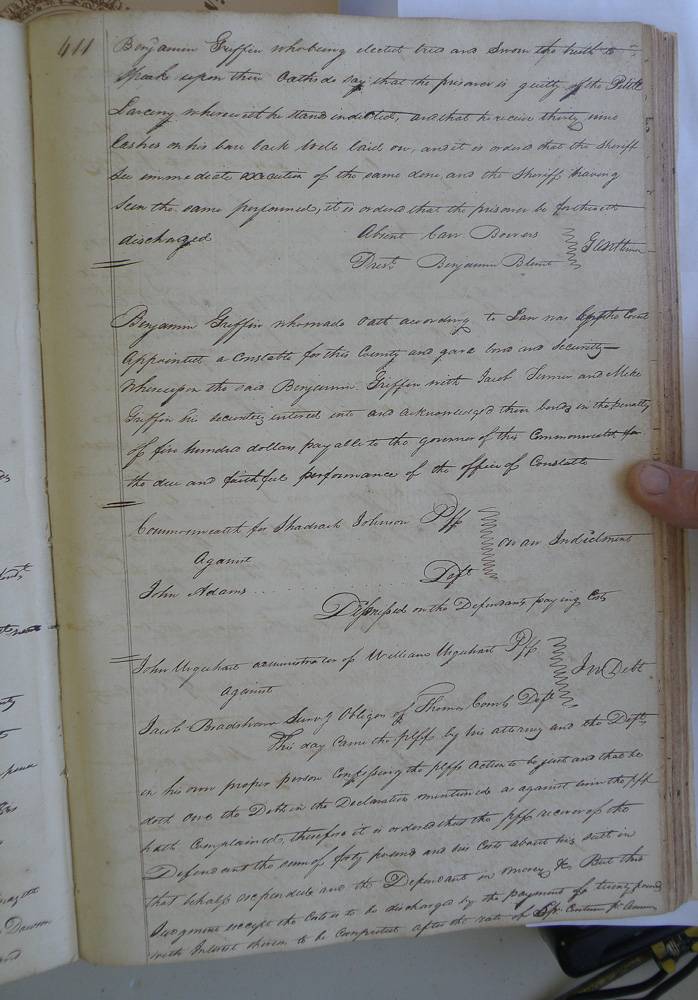 411
Benjamin Griffin who being elected tried and sworn the truth to
speak upon their Oaths do say that the prisoner is guilty of the Petit
Larceny wherewith he stand indicted, and that he receive thirty nine
lashes on his bare back well laid on, and it is ordered that the Sheriff
see immediate execution of the same done, and the Sheriff having
seen the same performed, it is ordered that the prisoner be forthwith
discharged
Absent Carr Bowers
Prest. Benjamin Blunt
Gentlemen
Benjamin Griffin who made oath according to Law was by the Court
Appointed a Constable for this County and gave bond and security
Whereupon the said Benjamin Griffin with Jacob Turner and
Griffin his securities entered into and acknowledged their bond in the penalty
of five hundred dollars payable to the governor of this Commonwealth for
the due and faithful performance of the office of Constable
Commonwealth for Shadrach Johnson Plff
Against
on an Indictment
John Adams Deft
Dismissed on the Defendants paying Costs
John Urquhart administrator of William Urquhart Plff
against
In Debt
Jacob Bradshaw Surv'g Obligor of Thomas Combs Deft
This day came the plff by his attorney and the Deft
in his own proper person confessing the plffs action to be just and that he
doth owe the Debt in the Declaration mentioned as against him the plff
hath Complained, therefore it is ordered that the plff recover of the
Defendant the sum of forty pounds and his Costs about his suit in
that behalf expended and the Defendant in mercy &c But this
Judgment except the Costs is to be discharged by the payment of twenty pounds
with Interest thereon to be Computed after the rate of Centum Pr. Annum